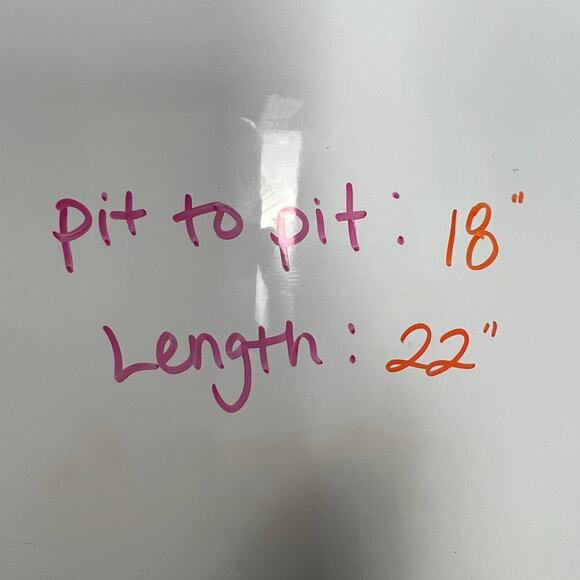 pit to pit: 18"
Length: 22"